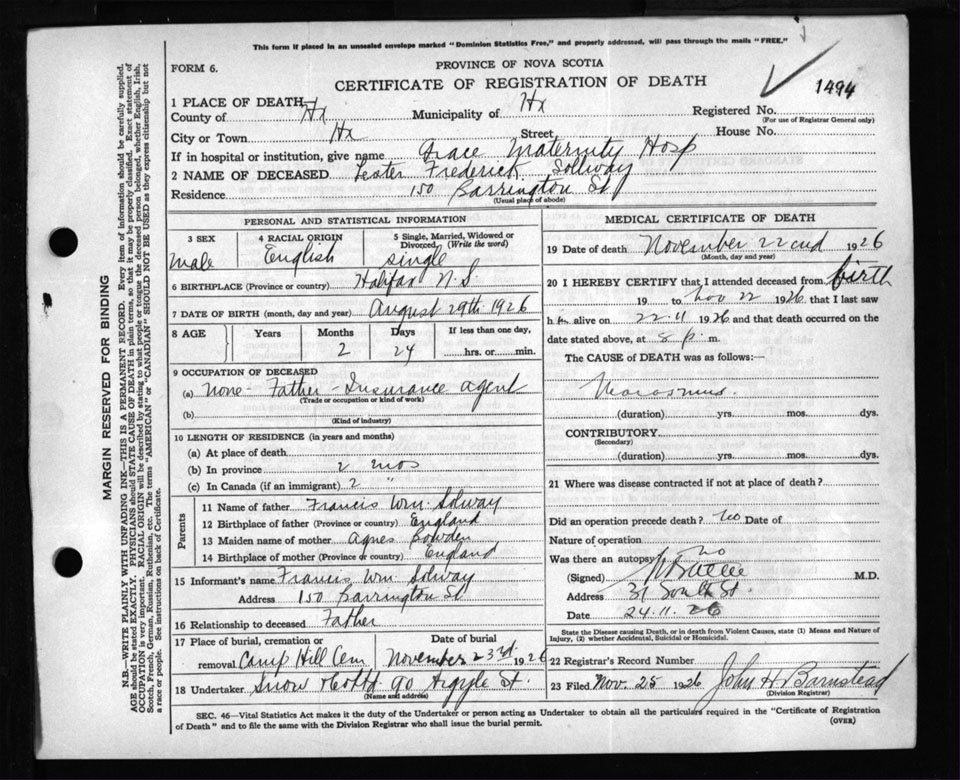 This form if placed in an unsealed envelope marked "Dominion Statistics Free," and properly addressed, will pass through the mails "FREE."
FORM 6.
PROVINCE OF NOVA SCOTIA
CERTIFICATE OF REGISTRATION OF DEATH
1494
1 PLACE OF DEATH
County of Hx Municipality of Hx Registered No.
(For use of Registrar General only)
City or Town Hx Street House No.
If in hospital or institution, give name Grace Maternity Hosp
2 NAME OF DECEASED Lester Frederick Sollway
Residence 150 Barrington St
(Usual place of abode)
PERSONAL AND STATISTICAL INFORMATION
3 SEX 4 RACIAL ORIGIN 5 Single, Married, Widowed or Divorced (Write the word)
male English single
6 BIRTHPLACE (Province or country) Halifax N.S
7 DATE OF BIRTH (month, day and year) August 29th 1926
8 AGE Years Months Days If less than one day,
2 24 hrs. or min.
9 OCCUPATION OF DECEASED
(a) None - Father - Insurance agent
(Trade or occupation or kind of work)
(b)
(Kind of industry)
10 LENGTH OF RESIDENCE (in years and months)
(a) At place of death
(b) In province 2 mos
(c) In Canada (if an immigrant) 2 "
Parents
11 Name of father Francis Wm. Solway
12 Birthplace of father (Province or country) England
13 Maiden name of mother Agnes Bowden
14 Birthplace of mother (Province or country) England
15 Informant's name Francis Wm Solway
Address 150 Barrington St
16 Relationship to deceased Father
17 Place of burial, cremation or removal Camp Hill Cem Date of burial November 23rd 1926
18 Undertaker Snow & Co Ltd 90 Argyle St.
(Name and address)
MEDICAL CERTIFICATE OF DEATH
19 Date of death November 22cnd 1926
(Month, day and year)
20 I HEREBY CERTIFY that I attended deceased from birth
19 to Nov 22 1926 that I last saw
h im alive on 22.11 1926 and that death occurred on the
date stated above, at 8 p. m.
The CAUSE OF DEATH was as follows:
Marasmus.
(duration) yrs. mos. dys.
CONTRIBUTORY
(Secondary)
(duration) yrs. mos. dys.
21 Where was disease contracted if not at place of death?
Did an operation precede death? No Date of
Nature of operation
Was there an autopsy? No
(Signed) M.D.
Address 31 South St.
Date 24.11.26
State the Disease causing Death, or in death from Violent Causes, state (1) Means and Nature of Injury, (2) whether Accidental, Suicidal or Homicidal.
22 Registrar's Record Number
23 Filed Nov. 25 1926 John H Barnstead
(Division Registrar)
SEC. 46—Vital Statistics Act makes it the duty of the Undertaker or person acting as Undertaker to obtain all the particulars required in the "Certificate of Registration
of Death" and to file the same with the Division Registrar who shall issue the burial permit.
(OVER)
MARGIN RESERVED FOR BINDING
N.B.—WRITE PLAINLY WITH UNFADING INK—THIS IS A PERMANENT RECORD. Every item of information should be carefully supplied.
AGE should be stated EXACTLY. PHYSICIANS should STATE CAUSE OF DEATH in plain terms, so that it may be properly classified. Exact statement of
OCCUPATION is very important. RACIAL ORIGIN will be described by stating to what people or tongue the deceased person belonged, whether English, Irish,
Scotch, French, German, Russian, Ruthenian, etc. The terms "AMERICAN" or "CANADIAN" SHOULD NOT BE USED as they express citizenship but not
a race or people. See instructions on back of Certificate.